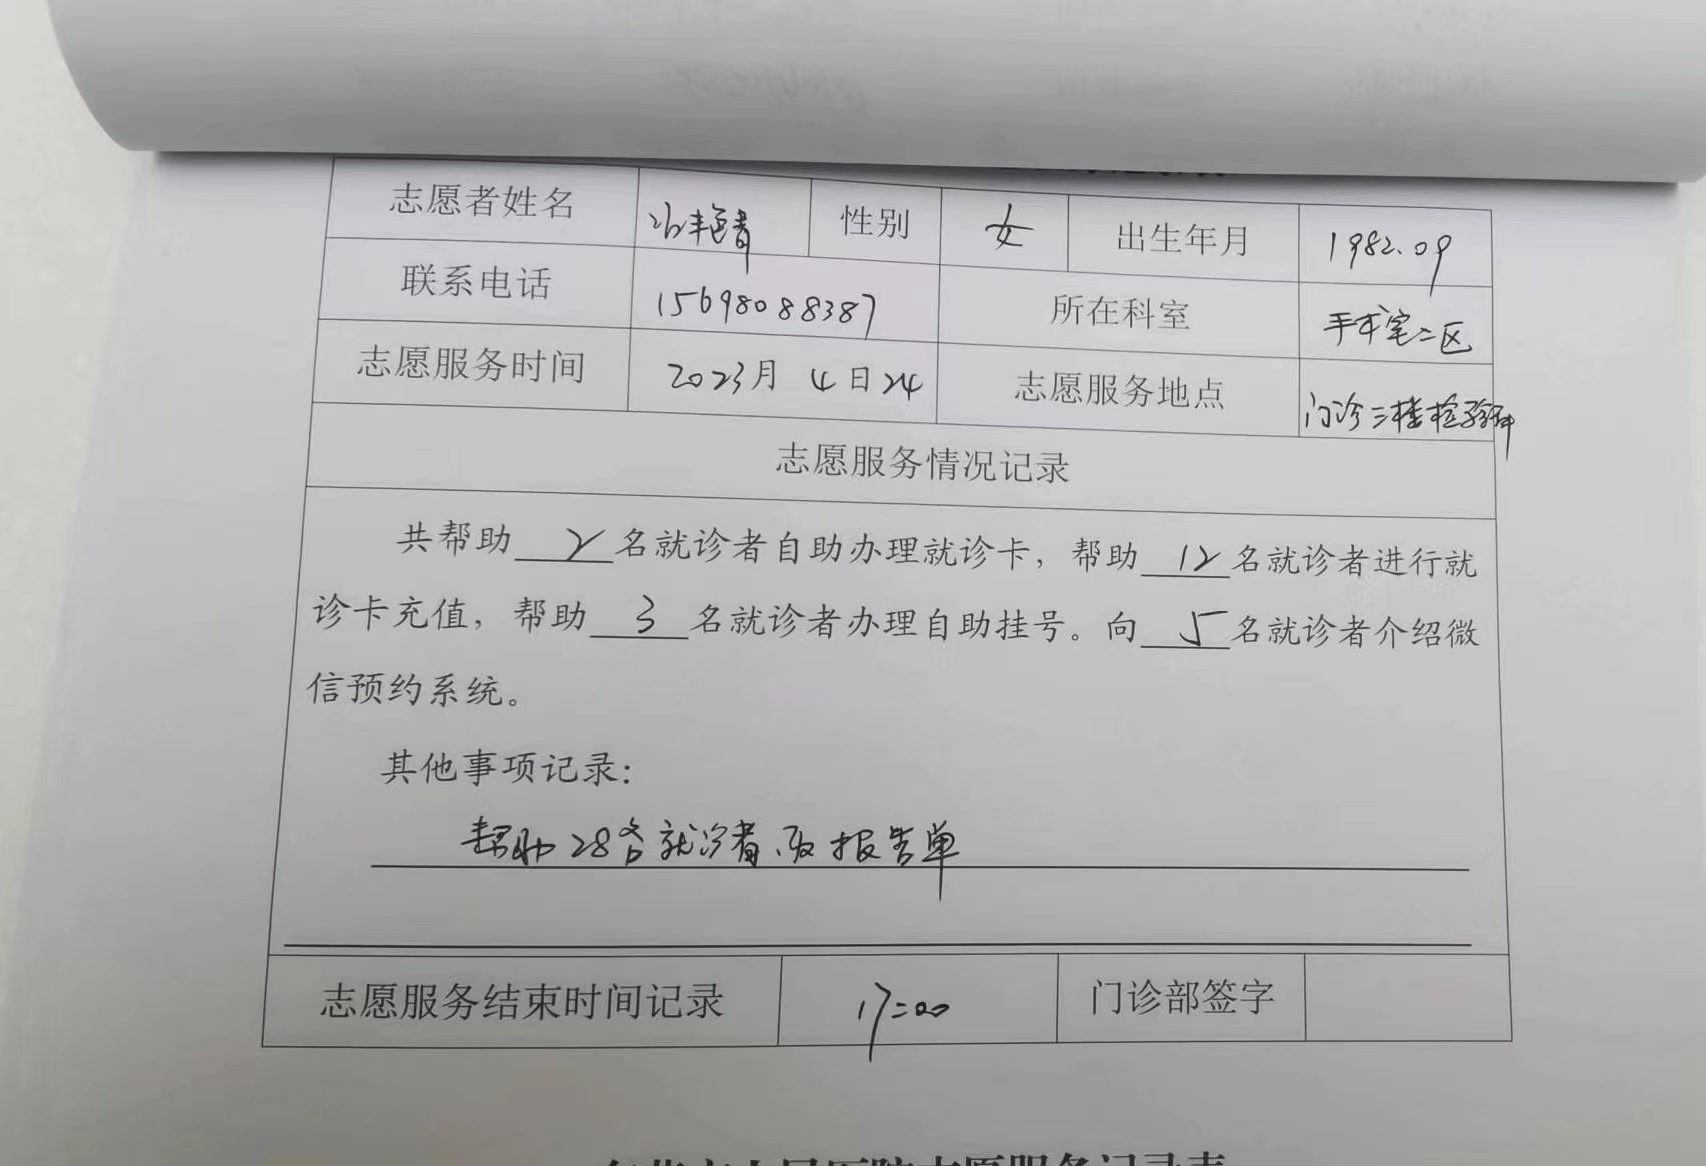 志愿者姓名 艳青 性别 女 出生年月 1982.09
联系电话 15698088387 所在科室 手术室二区
志愿服务时间 2023月 4日24 志愿服务地点 门诊三楼检验科
志愿服务情况记录
共帮助 2 名就诊者自助办理就诊卡，帮助 12 名就诊者进行就
诊卡充值，帮助 3 名就诊者办理自助挂号。向 5 名就诊者介绍微
信预约系统。
其他事项记录：
帮助28名就诊者取报告单
志愿服务结束时间记录 17:00 门诊部签字
人民医院志愿服务记录表